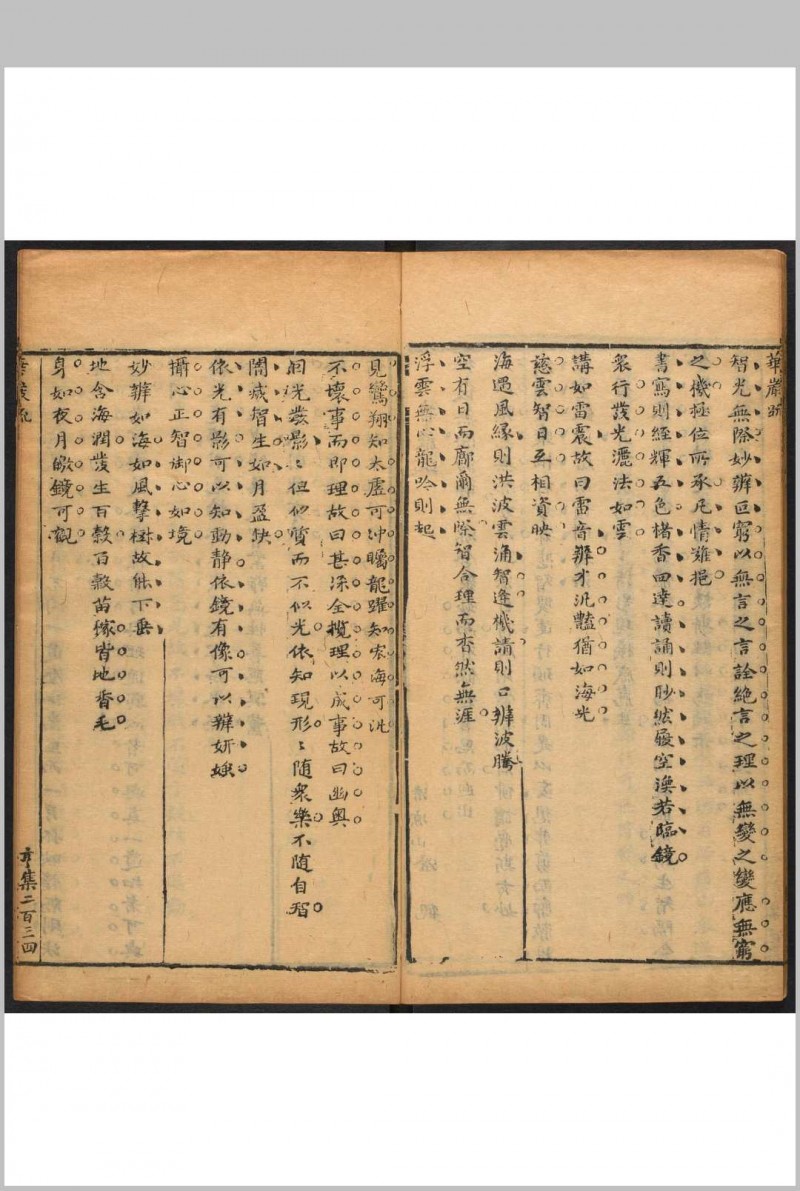 華嚴疏
智光無際妙辨叵窮以無言之言詮絶言之理以無變之變應無窮
之機極位所承凡情難挹
書寫則經輝五色楮香四達讀誦則眇然履空渙若臨鏡
衆行發光灑法如雲
講如雷震故曰雷音辨才汎豔猶如海光
慈雲智日互相資映
海遇風緣則洪波雲涌智逢機請則口辨波騰
空有日而廓爾無際智合理而杳然無涯
浮雲無心龍吟則起
見鸞翔知太虛可冲矚龍躍知宏海可汎
不壞事而即理故曰甚深全攬理以成事故曰幽奧
因光發影﹔但似質而不似光依知現形﹔随衆樂不随自智
闇滅智生如月盈缺
依光有影可以知動静依鏡有像可以辨妍媸
攝心正智御心如境
妙辨如海如風擊樹故能下垂
地含海潤發生百穀百穀苗稼皆地香毛
身如夜月皦鏡可觀
華嚴疏
子集二百三四